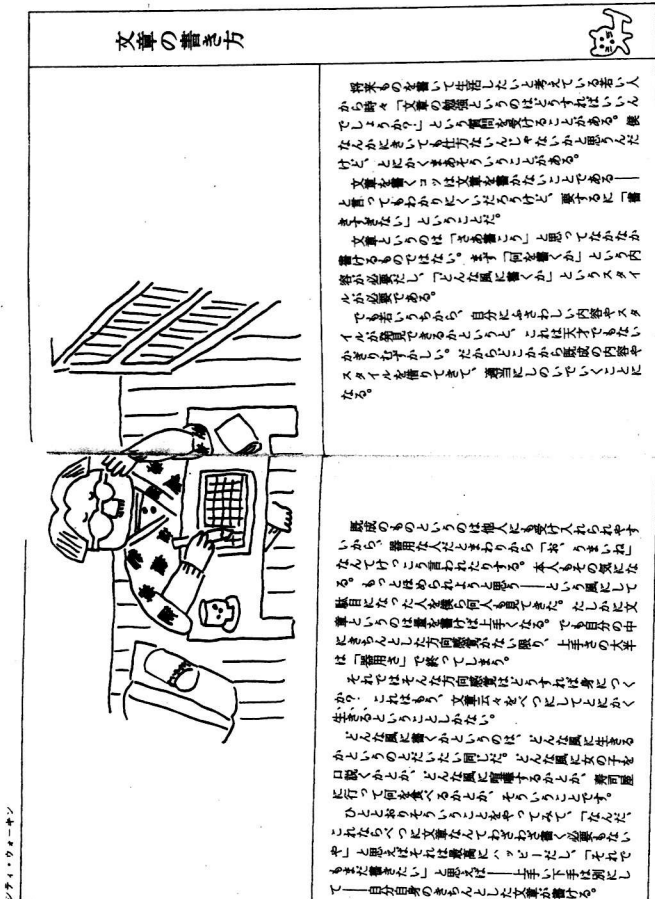 文章の書き方
将来ものを書いて生活したいと考えている若い人
から時々「文章の勉強というのはどうすればいいん
でしょうか?」という質問を受けることがある。僕
なんかにきいても仕方ないんじゃないかと思うんだ
けど、とにかくまあそういうことがある。
文章を書くコツは文章を書かないことである——
と言ってもわかりにくいだろうけど、要するに「書
きすぎない」ということだ。
文章というのは「さあ書こう」と思ってなかなか
書けるものではない。まず「何を書くか」という内
容が必要だし、「どんな風に書くか」というスタイ
ルが必要である。
でも若いうちから、自分にふさわしい内容やスタ
イルが発見できるかというと、これは天才でもない
かぎりむずかしい。だからどこかから既成の内容や
スタイルを借りてきて、適当にしのいでいくことに
なる。
既成のものというのは他人にも受け入れられやす
いから、器用な人だとまわりから「お、うまいね」
なんてけっこう言われたりする。本人もその気にな
る。もっとほめられようと思う——という風にして
駄目になった人を僕は何人も見てきた。たしかに文
章というのは量を書けば上手くなる。でも自分の中
にきちんとした方向感覚がない限り、上手さの大半
は「器用さ」で終ってしまう。
それではそんな方向感覚はどうすれば身につく
か? これはもう、文章云々をべつにしてとにかく
生きるということしかない。
どんな風に書くかというのは、どんな風に生きる
かというのとだいたい同じだ。どんな風に女の子を
口説くかとか、どんな風に喧嘩するかとか、寿司屋
に行って何を食べるかとか、そういうことです。
ひととおりそういうことをやってみて、「なんだ、
これならべつに文章なんてわざわざ書く必要もない
や」と思えばそれは最高にハッピーだし、「それで
もまだ書きたい」と思えば——上手い下手は別にし
て——自分自身のきちんとした文章が書ける。
シティ・ウォーキン